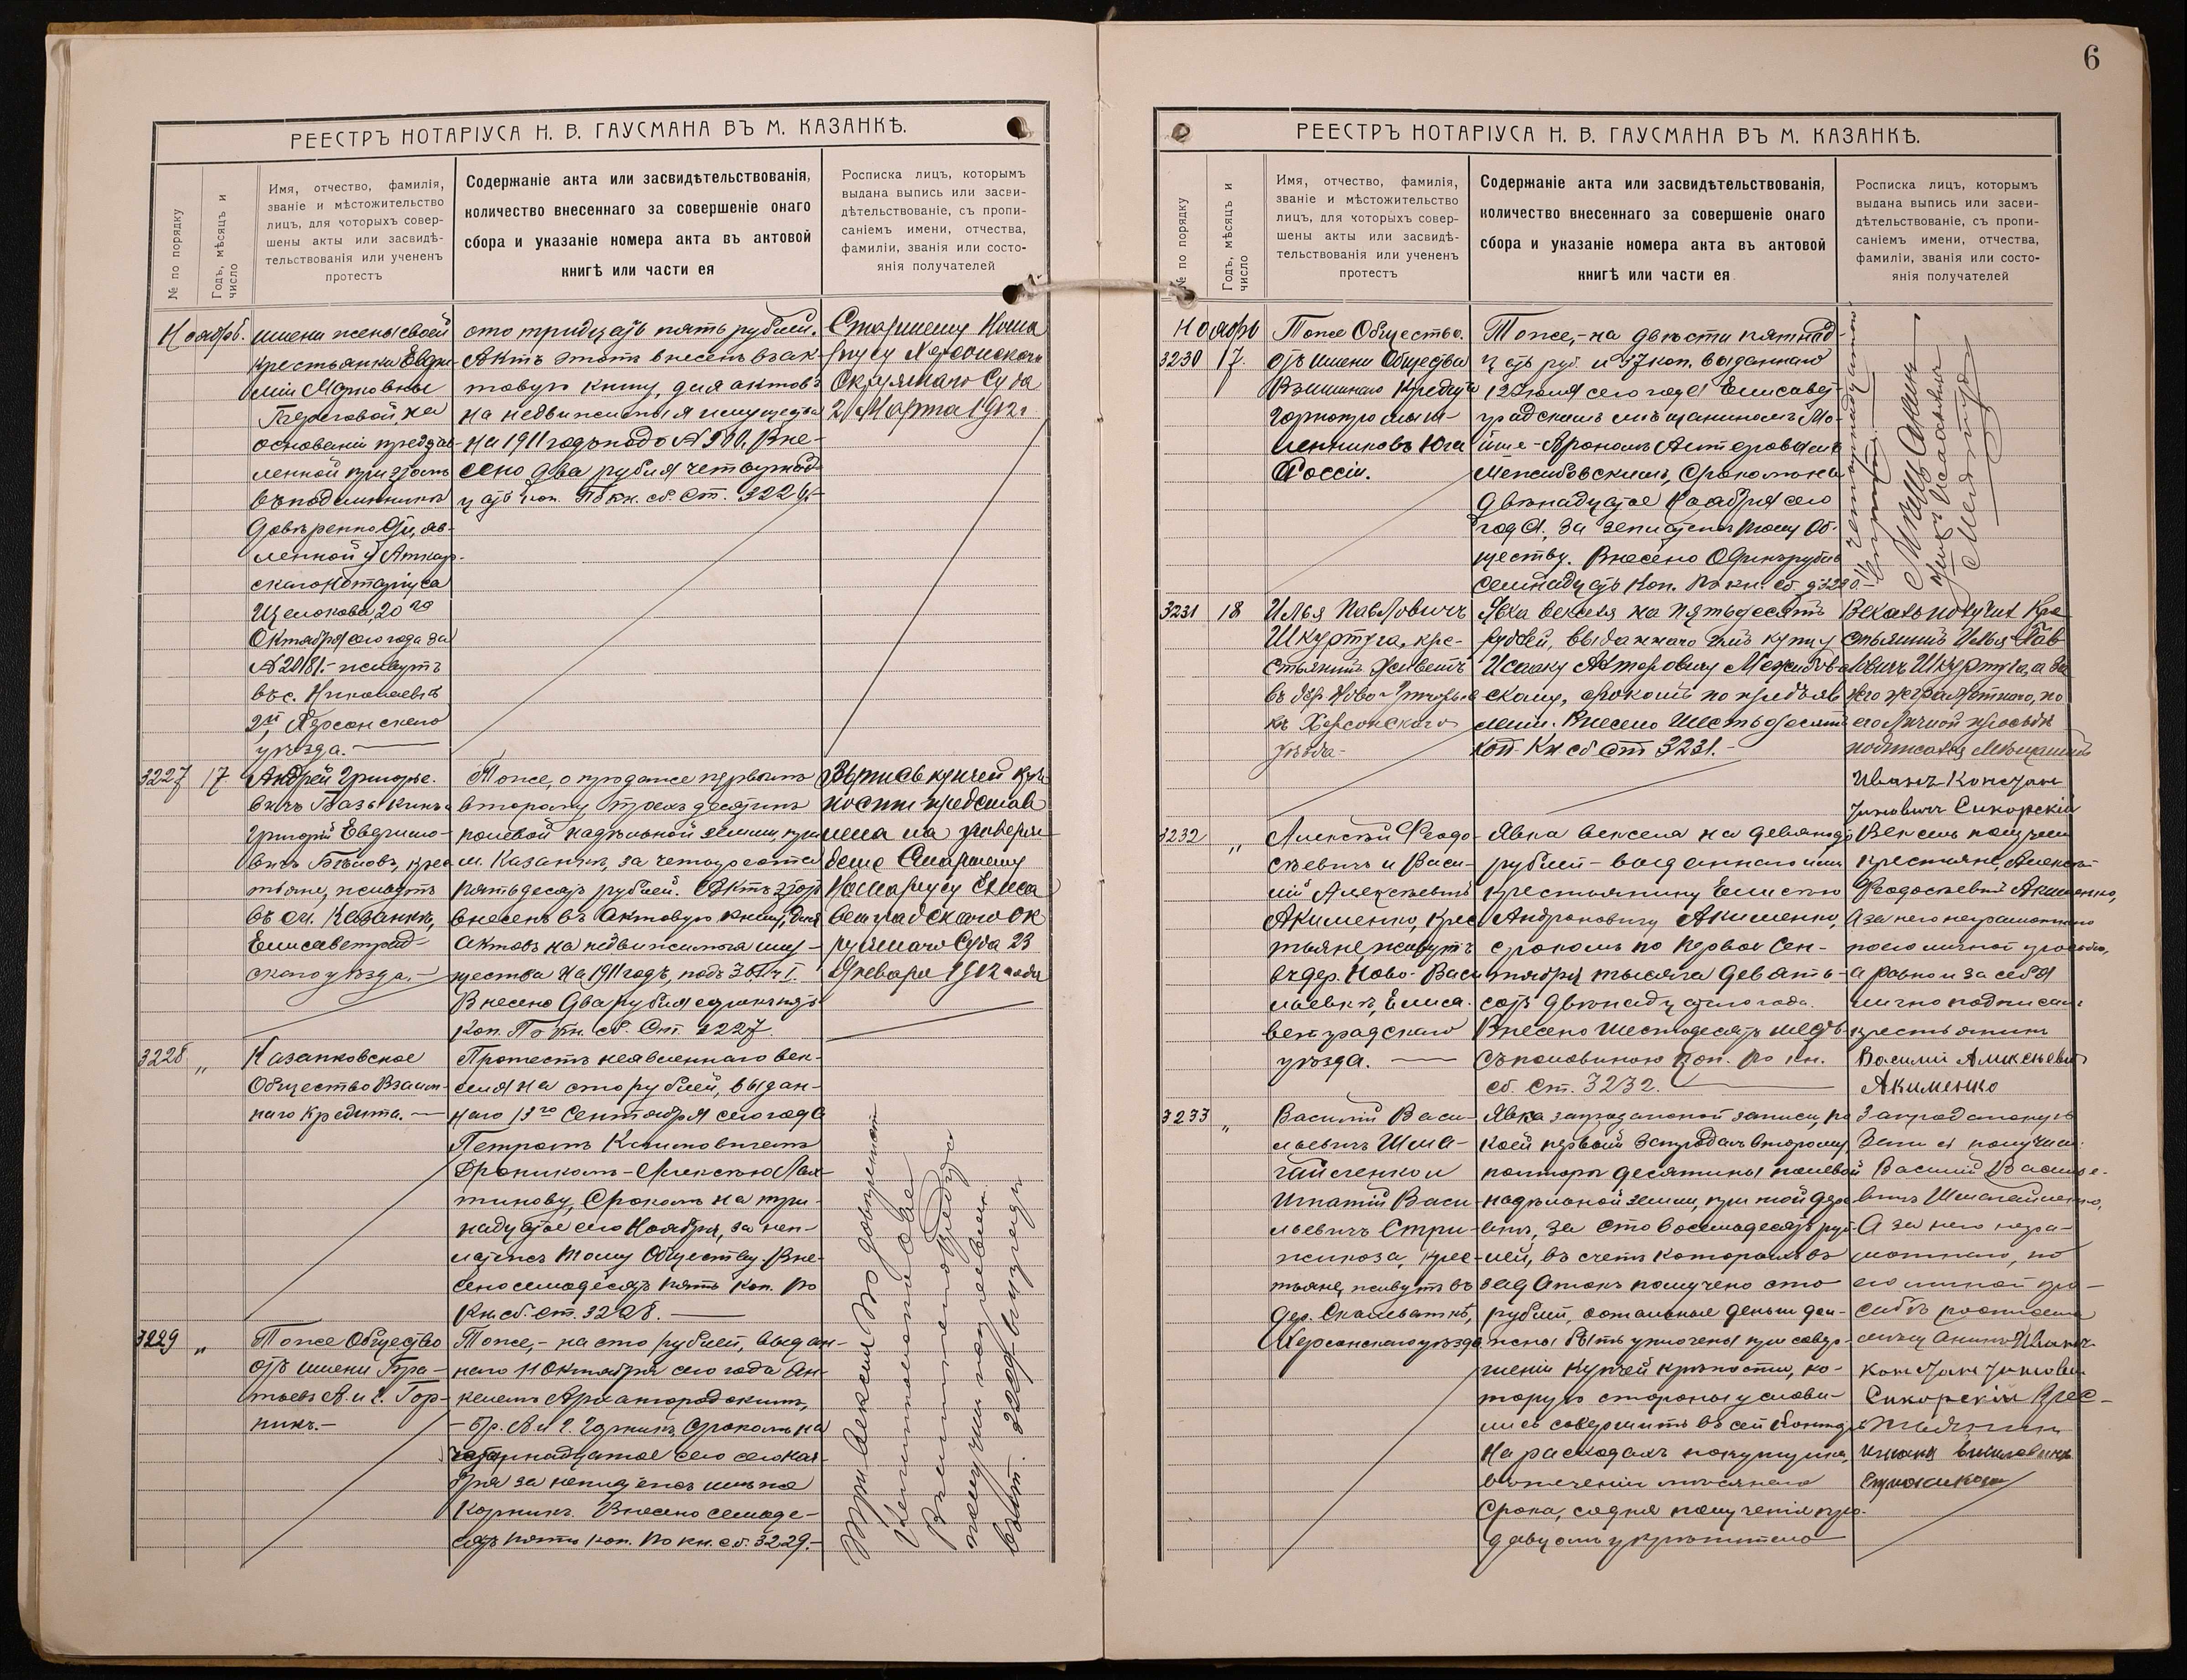 РЕЕСТРЪ НОТАРІУСА Н. В. ГАУСМАНА ВЪ М. КАЗАНКѢ.
№ по порядку
Годъ, мѣсяцъ и
число
Имя, отчество, фамилія,
званіе и мѣстожительство
лицъ, для которыхъ совер-
шены акты или засвидѣ-
тельствованія или учененъ
протестъ
Содержаніе акта или засвидѣтельствованія,
количество внесеннаго за совершеніе онаго
сбора и указаніе номера акта въ актовой
книгѣ или части ея
Росписка лицъ, которымъ
выдана выпись или засви-
дѣтельствованіе, съ пропи-
саніемъ имени, отчества,
фамиліи, званія или состо-
янія получателей
Ноябрь.
имени жены своей
крестьянки Евфи-
міи Марковны
на
основаніи предъяв-
ленной при этомъ
въ подлинникѣ
довѣренности, яв-
ленной у Аткар-
скаго Нотаріуса
Щелокова, 20го
Октября сего года за
№ 20181.- живутъ
въ с. Николаевкѣ
2й, Херсонскаго
уѣзда.
сто тридцать пять рублей.
Актъ этотъ внесенъ въ ак-
товую книгу, для актовъ
на недвижимыя имущества
на 1911 годъ подъ № 500. Вне-
сено два рубля четырнад-
цать коп. По кн. сб. Ст. 3226.
Старшему Нота
ріусу Херсонскаго
Окружнаго Суда
21 Марта 1912г
3227
17.
Андрей Григорье-
вичъ
Григорій Евфимо-
вичъ Бѣловъ, крес
тьяне, живутъ
въ м. Казанкѣ,
Елисаветград-
скаго уѣзда.-
Тоже, о продаже первымъ
второму трехъ десятинъ
полевой надѣльной земли, при
м. Казанкѣ, за четыреста
пятьдесятъ рублей. Актъ этотъ
внесенъ въ актовую книгу, для
актовъ на недвижимыя иму-
щества на 1911 годъ, подъ
Внесено два рубля
коп. По кн. сб. Ст. 3227.
Выпись купчей крѣ
пости представ
лена на утверж
деніе Старшему
Нотаріусу Елиса
ветградскаго Ок
ружнаго Суда 23
Января 1912 года
3228
„
Казанковское
Общество Взаим-
наго Кредита.
Протестъ неявленнаго век-
селя на сто рублей, выдан-
наго 13го Сентября сего года
Петромъ Климовичемъ
Дроникомъ - Алексѣю
срокомъ на три-
надцатое сего Ноября, за неп-
латежъ тому Обществу. Вне-
сено семьдесятъ пять коп. По
Кн. сб. Ст. 3228.
3229
„
Тоже Общество
отъ имени Бра-
тьевъ А. и Г. Гор-
никъ.-
Тоже,- на сто рублей, выдан-
наго 11 Октября сего года Ан-
Архангородскимъ,
- Бр. А. и Г. Горникъ, срокомъ на
четырнадцатое сего сего Ноя-
бря за неплатежъ имъ же
Внесено семьде-
сятъ пять коп. По кн. сб. 3229.-
Три векселя по довѣренности
6
РЕЕСТРЪ НОТАРІУСА Н. В. ГАУСМАНА ВЪ М. КАЗАНКѢ.
№ по порядку
Годъ, мѣсяцъ и
число
Имя, отчество, фамилія,
званіе и мѣстожительство
лицъ, для которыхъ совер-
шены акты или засвидѣ-
тельствованія или учененъ
протестъ
Содержаніе акта или засвидѣтельствованія,
количество внесеннаго за совершеніе онаго
сбора и указаніе номера акта въ актовой
книгѣ или части ея
Росписка лицъ, которымъ
выдана выпись или засви-
дѣтельствованіе, съ пропи-
саніемъ имени, отчества,
фамиліи, званія или состо-
янія получателей
Ноябрь
3230
17.
Тоже Общество.
отъ имени Общества
Взаимнаго Кредита
Горнопромыш-
ленниковъ Юга
Россіи.
Тоже,- на двѣсти пятнад-
цать руб. и 37 коп. выданнаго
12 Іюля сего года Елисавет-
градскимъ мѣщаниномъ Мо-
Арономъ
Межибовскимъ, срокомъ на
двѣнадцатое Ноября сего
года, за неплатежъ тому Об-
ществу. Внесено Одинъ рубль
семнадцать коп. По кн. сб. 3230.-
3231
18
Илья Павловичъ
Шкуртуга, кре-
стьянинъ живетъ
въ дер. Ново-
кѣ Херсонскаго
уѣзда-
Явка векселя на пятьдесятъ
рублей, выданнаго имъ купцу
Исааку Межибов-
скому, срокомъ по предъяв-
леніи. Внесено Шестьдесятъ
коп. Кн сб Ст 3231.-
Вексель получилъ Кре
стьянинъ Илья Пав
ловичъ Шкуртуга, а за
него неграмотнаго, по
его личной просьбѣ
подписался мѣщанинъ
Иванъ Констан
тиновичъ Сикорскій
3232
„
Алексѣй Феодо-
сьевичъ и Васи-
лій Алексѣевичъ
Акименко, Крес
тьяне, живутъ
въ дер. Ново-Васи
льевкѣ, Елиса-
ветградскаго
уѣзда.
Явка векселя на девяносто
рублей - выданнаго ими
крестьянину Елисѣю
Андроновичу Акименко,
срокомъ по первое Сен-
тября тысяча девять-
сотъ двѣнадцатаго года.
Внесено шестьдесятъ шесть
съ половиною коп. По кн.
сб. Ст. 3232.
Вексель получили
крестьяне, Алексѣй
Феодосьевичъ Акименко,
а за него неграмотнаго
по его личной просьбѣ,
а равно и за себя
лично подписалъ
крестьянинъ
Василій Алексѣевичъ
Акименко
3233
„
Василій Васи-
льевичъ Шма-
гайленко и
Игнатій Васи-
льевичъ Стри-
жикоза, крес-
тьяне, живутъ въ
дер. Скалеваткѣ,
Херсонскаго уѣзда
Явка запродажной записи, по
коей первый запродалъ второму,
полторы десятины полевой
надѣльной земли, при той дерев-
нѣ, за сто восемьдесятъ руб-
лей, въ счетъ которыхъ въ
задатокъ получено сто
рублей, остальные деньги дол-
жны быть уплочены при совер-
шеніи купчей крѣпости, ко-
торую стороны услови-
лись совершить въ сей Конторѣ
на расходахъ покупщика,
въ теченіи мѣсячнаго
срока, со дня полученія про-
давцомъ укрѣпительно
Запродажную
получили
Василій Василье-
вичъ Шмагайленко,
а за него негра-
мотнаго, по
его личной про-
сьбѣ
мѣщанинъ Иванъ
Константинович
Сикорскій Крес-
тьянин